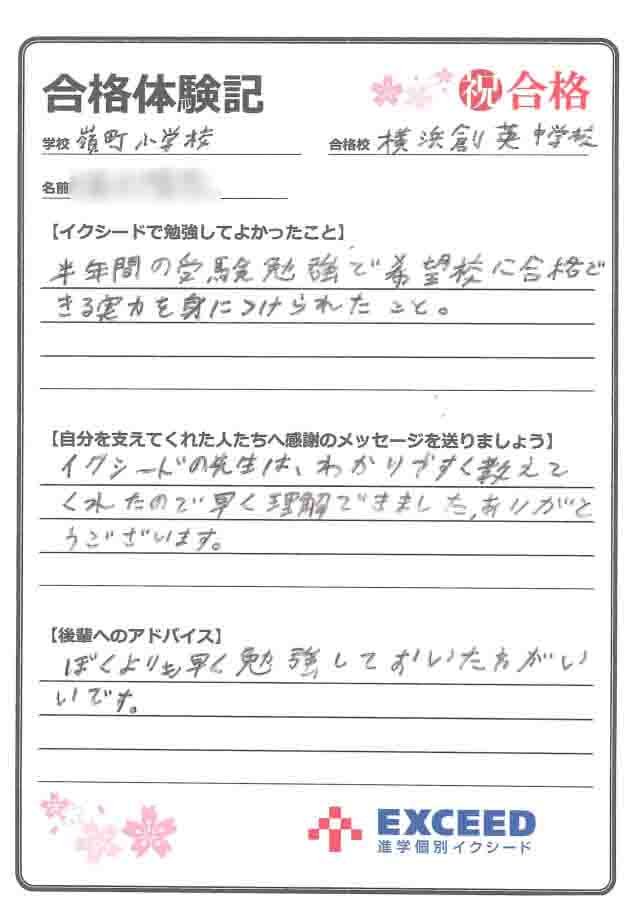 合格体験記
祝 合格
学校 嶺町小学校
合格校 横浜創英中学校
名前
【イクシードで勉強してよかったこと】
半年間の受験勉強で希望校に合格で
きる実力を身につけられたこと。
【自分を支えてくれた人たちへ感謝のメッセージを送りましょう】
イクシードの先生は、わかりやすく教えて
くれたので早く理解できました。ありがと
うございます。
【後輩へのアドバイス】
ぼくよりも早く勉強しておいた方がい
いです。
EXCEED
進学個別イクシード